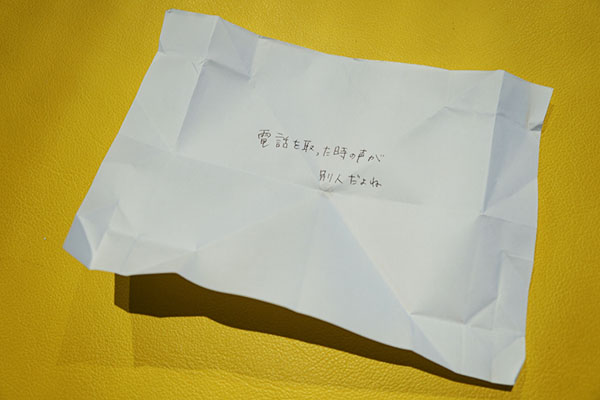 電話を取った時の声が
別人だよね